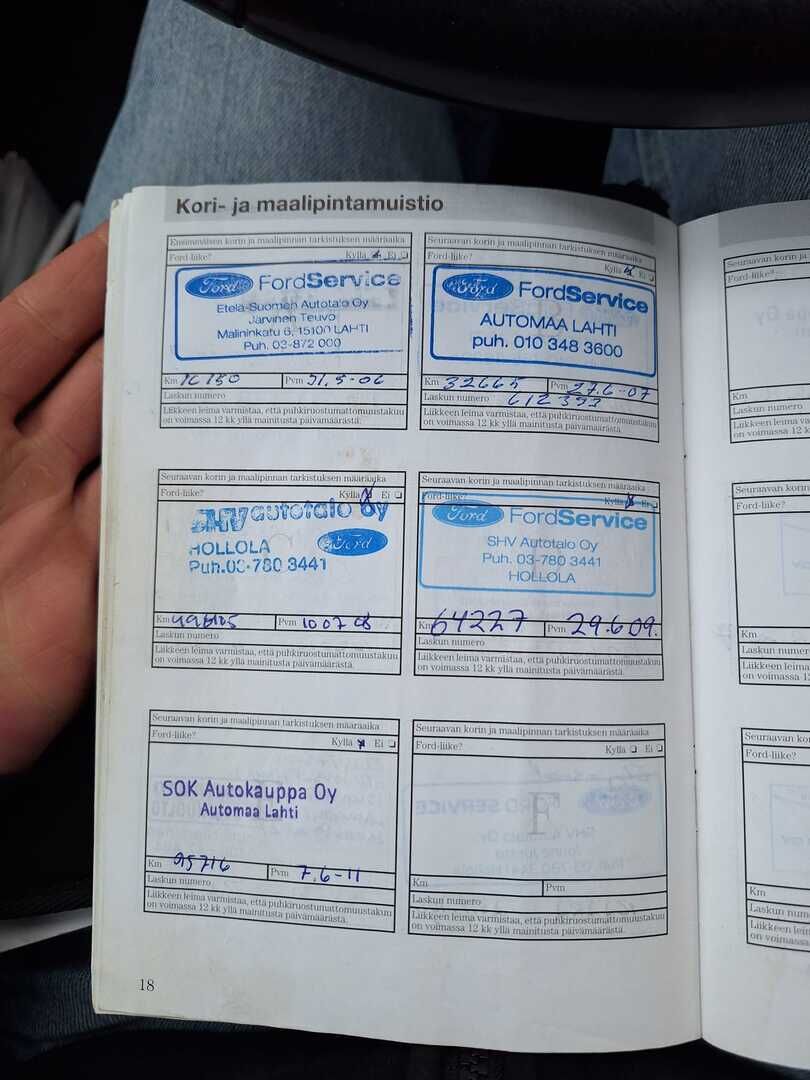 Kori- ja maalipintamuistio
Ensimmäisen korin ja maalipinnan tarkistuksen määräaika
Ford-liike? Kyllä Ei
Ford FordService
Etelä-Suomen Autotalo Oy
Järvinen Teuvo
Malininkatu 6, 15100 LAHTI
Puh. 03-872 000
Km 16150 Pvm 31.5-06
Laskun numero
Liikkeen leima varmistaa, että puhkiruostumattomuustakuu
on voimassa 12 kk yllä mainitusta päivämäärästä.
Seuraavan korin ja maalipinnan tarkistuksen määräaika
Ford-liike? Kyllä Ei
Ford FordService
AUTOMAA LAHTI
puh. 010 348 3600
Km 32665 Pvm 27.6-07
Laskun numero 612353
Liikkeen leima varmistaa, että puhkiruostumattomuustakuu
on voimassa 12 kk yllä mainitusta päivämäärästä.
Seuraavan korin ja maalipinnan tarkistuksen määräaika
Ford-liike? Kyllä Ei
SHV autotalo oy
HOLLOLA Ford
Puh.03-780 3441
Km Pvm 10 07 08
Laskun numero
Liikkeen leima varmistaa, että puhkiruostumattomuustakuu
on voimassa 12 kk yllä mainitusta päivämäärästä.
Seuraavan korin ja maalipinnan tarkistuksen määräaika
Ford-liike? Kyllä Ei
Ford FordService
SHV Autotalo Oy
Puh. 03-780 3441
HOLLOLA
Km 64227 Pvm 29.6.09.
Laskun numero
Liikkeen leima varmistaa, että puhkiruostumattomuustakuu
on voimassa 12 kk yllä mainitusta päivämäärästä.
Seuraavan korin ja maalipinnan tarkistuksen määräaika
Ford-liike? Kyllä Ei
SOK Autokauppa Oy
Automaa Lahti
Km 95716 Pvm 7.6-11
Laskun numero
Liikkeen leima varmistaa, että puhkiruostumattomuustakuu
on voimassa 12 kk yllä mainitusta päivämäärästä.
Seuraavan korin ja maalipinnan tarkistuksen määräaika
Ford-liike? Kyllä Ei
Km Pvm
Laskun numero
Liikkeen leima varmistaa, että puhkiruostumattomuustakuu
on voimassa 12 kk yllä mainitusta päivämäärästä.
18
Ford-liike?
Km
Laskun numero
Liikkeen leima
on voimassa 12
Seuraavan kori
Ford-liike?
Km
Laskun numero
Liikkeen leima
on voimassa 12
Seuraavan kor
Ford-liike?
Km
Laskun num
Liikkeen lei
on voimassa